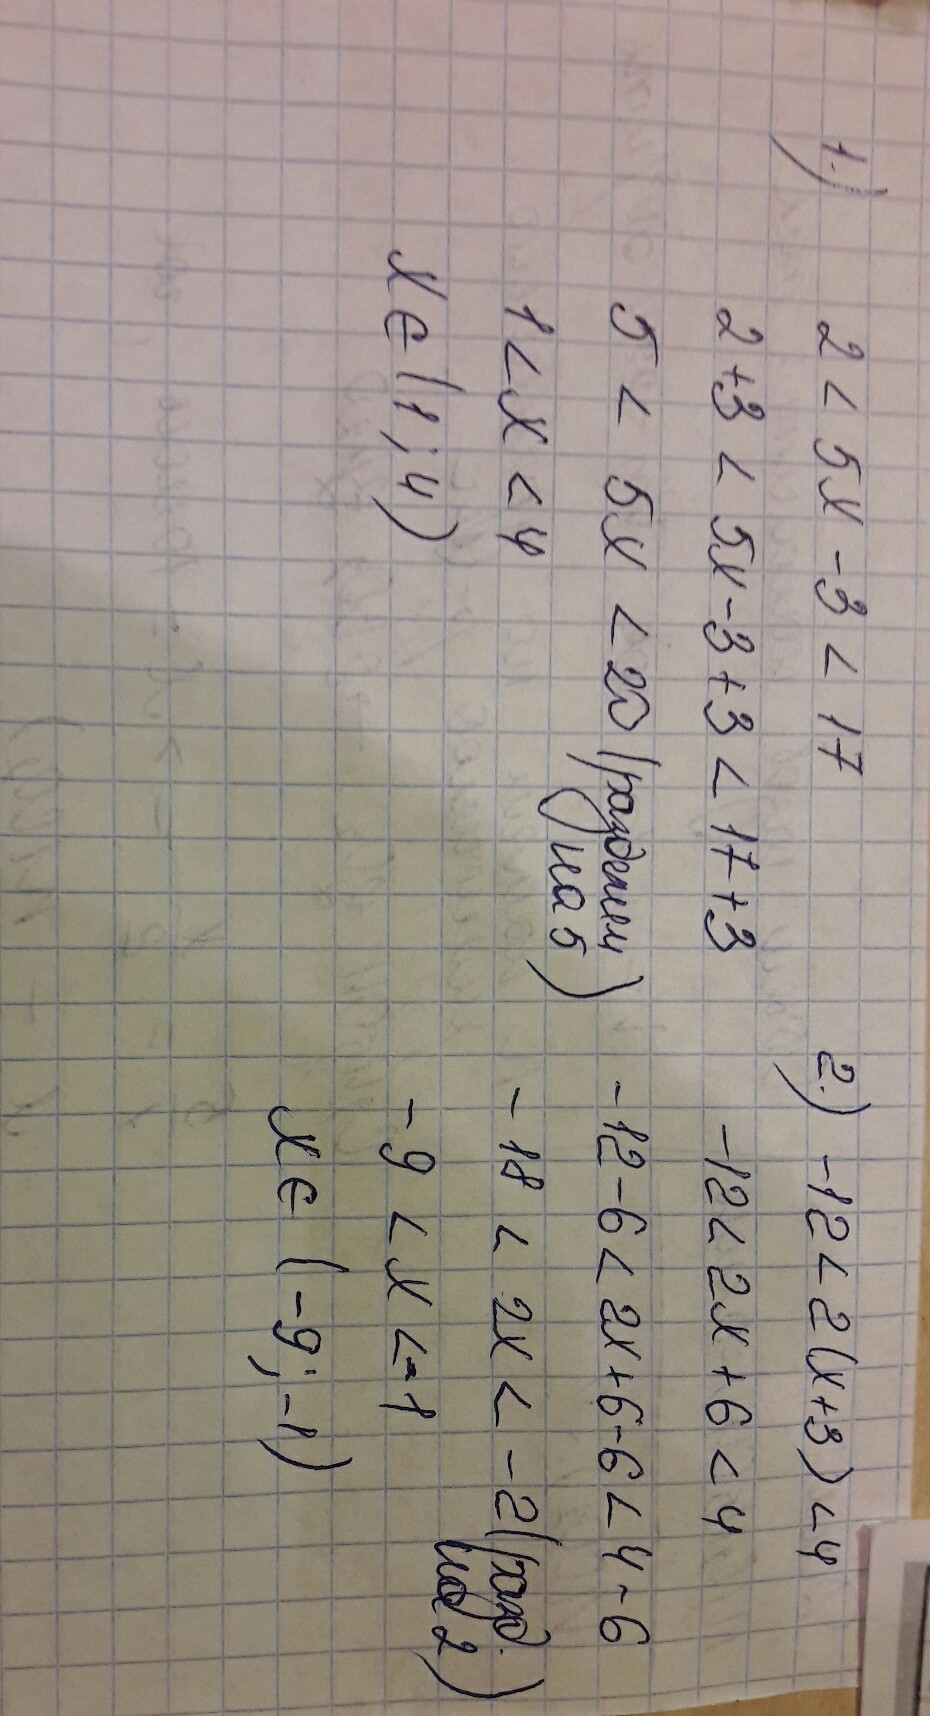 1.)
2 < 5x - 3 < 17
2 + 3 < 5x - 3 + 3 < 17 + 3
5 < 5x < 20 (разделим
на 5)
1 < x < 4
x ∈ (1; 4)
2.) -12 < 2(x+3) < 4
-12 < 2x + 6 < 4
-12 - 6 < 2x + 6 - 6 < 4 - 6
-18 < 2x < -2 (разд.
на 2)
-9 < x < -1
x ∈ (-9; -1)